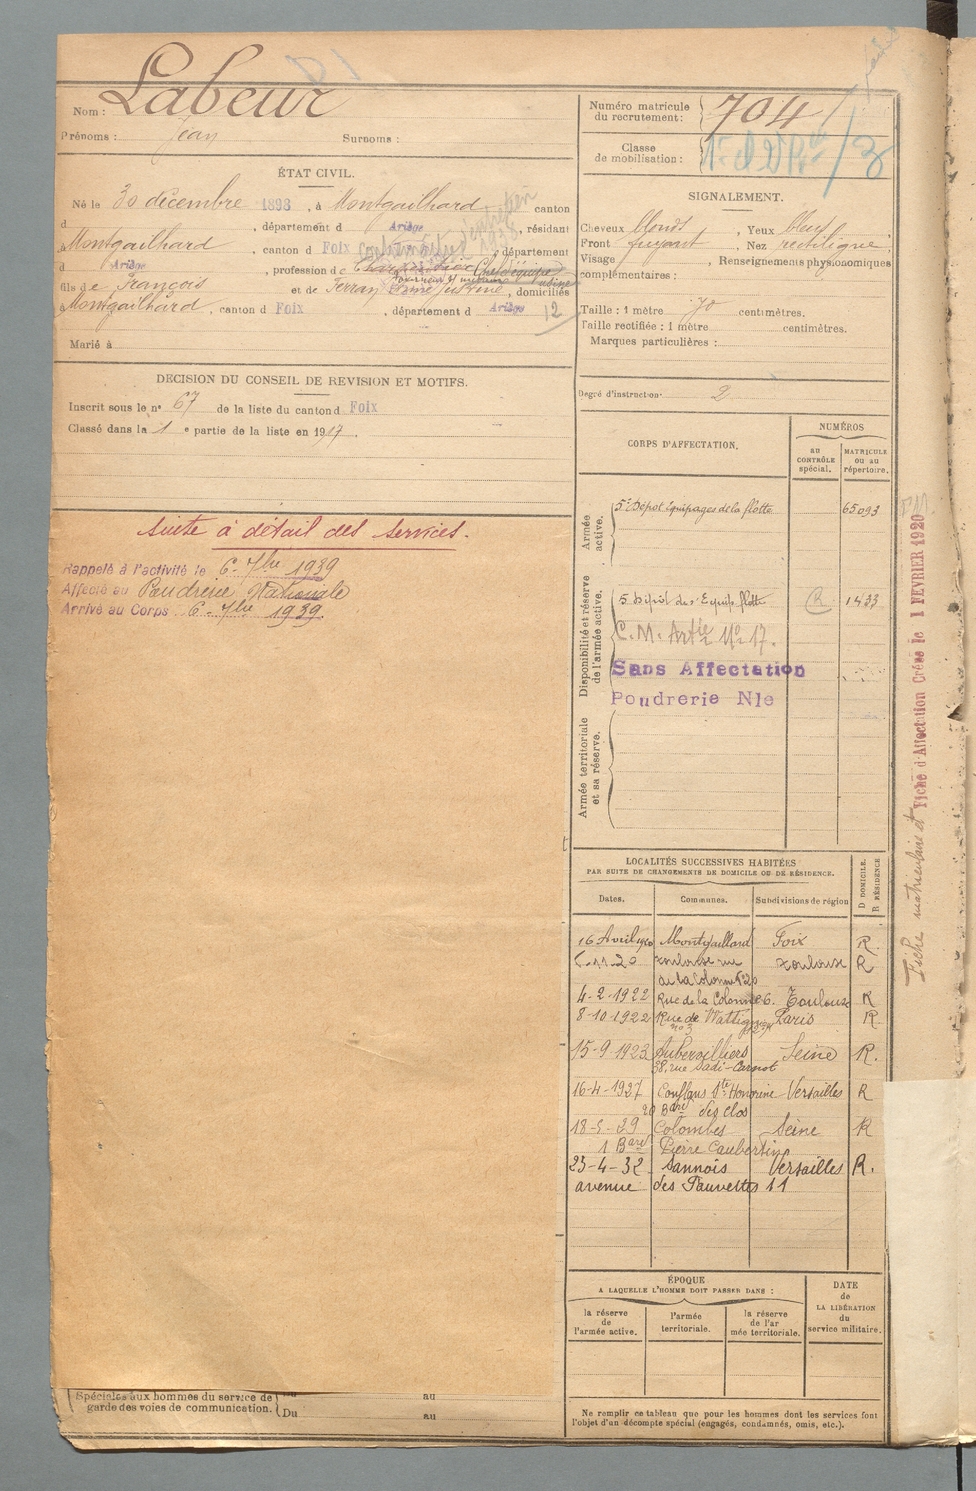 Nom : Labeur
Prénoms : Jean Surnoms :
ÉTAT CIVIL.
Né le 30 décembre 1898, à Montgailhard canton
d , département d Ariège, résidant
à Montgailhard, canton d Foix, département
d Ariège, profession de Chef d'équipe
usine
fils de François et de Terran Justine, domiciliés
à Montgailhard, canton d Foix, département d Ariège 12
Marié à
DECISION DU CONSEIL DE REVISION ET MOTIFS.
Inscrit sous le n° 67 de la liste du canton d Foix
Classé dans la 1 e partie de la liste en 1917.
Suite à détail des services.
Rappelé à l'activité le 6 7bre 1939
Affecté au Poudrerie Nationale
Arrivé au Corps 6 7bre 1939
Spéciales aux hommes du service de
garde des voies de communication.
au
Du au
Numéro matricule
du recrutement : 704
Classe
de mobilisation :
SIGNALEMENT.
Cheveux blonds, Yeux bleus
Front fuyant, Nez rectiligne
Visage , Renseignements physionomiques
complémentaires :
Taille : 1 mètre 70 centimètres.
Taille rectifiée : 1 mètre centimètres.
Marques particulières :
Degré d'instruction 2
CORPS D'AFFECTATION.
NUMÉROS
au
CONTRÔLE
spécial.
MATRICULE
ou au
répertoire.
Armée
active.
5e Dépôt équipages de la flotte 65093
Disponibilité et réserve
de l'armée active.
5 Dépôt des Equip. flotte R 1433
C. M. Artie N° 17.
Sans Affectation
Poudrerie Nle
Armée territoriale
et sa réserve.
LOCALITÉS SUCCESSIVES HABITÉES
PAR SUITE DE CHANGEMENTS DE DOMICILE OU DE RÉSIDENCE.
Dates. Communes. Subdivisions de région
D DOMICILE.
R RÉSIDENCE
16 Avril 1920 Montgaillard Foix R.
5.11.20 Toulouse rue Toulouse R
de la Colonne n°20
4-2-1922 Rue de la Colonne 26. Toulouse R
8-10-1922 Rue de Wattignies Paris R.
n° 3
15-9-1923 Aubervilliers Seine R.
38, rue Sadi-Carnot
16-4-1927 Conflans Ste Honorine Versailles R
20 Bard des clos
18-5-29 Colombes Seine R
1 Bard Pierre Caubertin
23-4-32 Sannois Versailles R.
avenue des Fauvettes 11
ÉPOQUE
A LAQUELLE L'HOMME DOIT PASSER DANS :
la réserve
de
l'armée active.
l'armée
territoriale.
la réserve
de l'ar
mée territoriale.
DATE
de
LA LIBÉRATION
du
service militaire.
Ne remplir ce tableau que pour les hommes dont les services font
l'objet d'un décompte spécial (engagés, condamnés, omis, etc.).
Fiche matriculaire et Fiche d'Affectation Créée le 1 FEVRIER 1920